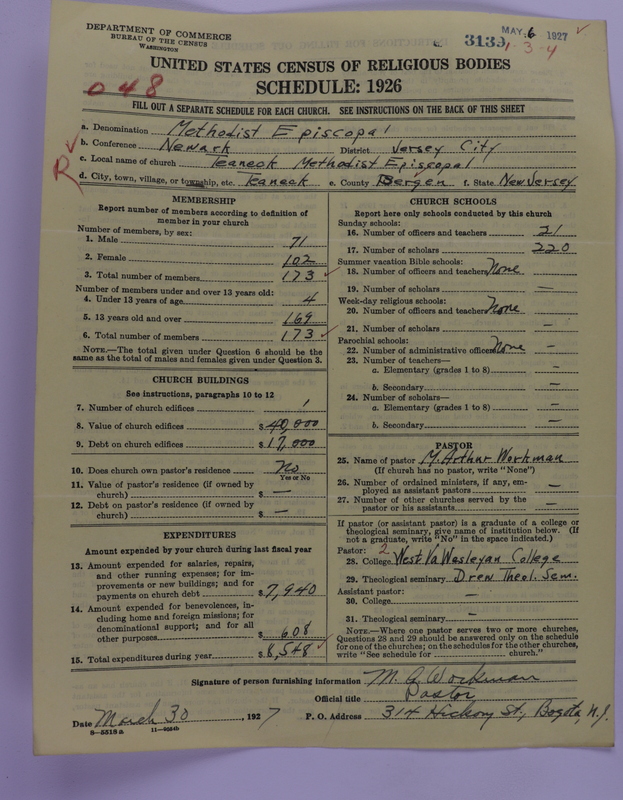 DEPARTMENT OF COMMERCE
BUREAU OF THE CENSUS
WASHINGTON
MAY 6 1927
3139
1-3-4
048
UNITED STATES CENSUS OF RELIGIOUS BODIES
SCHEDULE: 1926
FILL OUT A SEPARATE SCHEDULE FOR EACH CHURCH. SEE INSTRUCTIONS ON THE BACK OF THIS SHEET
a. Denomination Methodist Episcopal
b. Conference Newark District Jersey City
R
c. Local name of church Teaneck Methodist Episcopal
d. City, town, village, or township, etc. Teaneck e. County Bergen f. State New Jersey
MEMBERSHIP
Report number of members according to definition of
member in your church
Number of members, by sex:
1. Male 71
2. Female 102
3. Total number of members 173
Number of members under and over 13 years old:
4. Under 13 years of age 4
5. 13 years old and over 169
6. Total number of members 173
NOTE.—The total given under Question 6 should be the
same as the total of males and females given under Question 3.
CHURCH BUILDINGS
See instructions, paragraphs 10 to 12
7. Number of church edifices 1
8. Value of church edifices $ 40,000
9. Debt on church edifices $ 17,000
10. Does church own pastor's residence No
Yes or No
11. Value of pastor's residence (if owned by
church) $ —
12. Debt on pastor's residence (if owned by
church) $ —
EXPENDITURES
Amount expended by your church during last fiscal year
13. Amount expended for salaries, repairs,
and other running expenses; for im-
provements or new buildings; and for
payments on church debt $ 7,940
14. Amount expended for benevolences, in-
cluding home and foreign missions; for
denominational support; and for all
other purposes $ 608
15. Total expenditures during year $ 8,548
CHURCH SCHOOLS
Report here only schools conducted by this church
Sunday schools:
16. Number of officers and teachers 21
17. Number of scholars 220
Summer vacation Bible schools:
18. Number of officers and teachers None
19. Number of scholars —
Week-day religious schools:
20. Number of officers and teachers None
21. Number of scholars —
Parochial schools:
22. Number of administrative officers None —
23. Number of teachers—
a. Elementary (grades 1 to 8) —
b. Secondary —
24. Number of scholars—
a. Elementary (grades 1 to 8) —
b. Secondary —
PASTOR
25. Name of pastor M. Arthur Workman
(If church has no pastor, write "None")
26. Number of ordained ministers, if any, em-
ployed as assistant pastors —
27. Number of other churches served by the
pastor or his assistants —
If pastor (or assistant pastor) is a graduate of a college or
theological seminary, give name of institution below. (If
not a graduate, write "No" in the space indicated.)
Pastor: 2
28. College West Va Wesleyan College
29. Theological seminary Drew Theol. Sem.
Assistant pastor:
30. College —
31. Theological seminary —
NOTE.—Where one pastor serves two or more churches,
Questions 28 and 29 should be answered only on the schedule
for one of the churches; on the schedules for the other churches,
write "See schedule for church."
Signature of person furnishing information M. A. Workman
Official title Pastor
Date March 30, 1927 P. O. Address 314 Hickory St., Bogota, N.J.
8—5518a 11—9054b